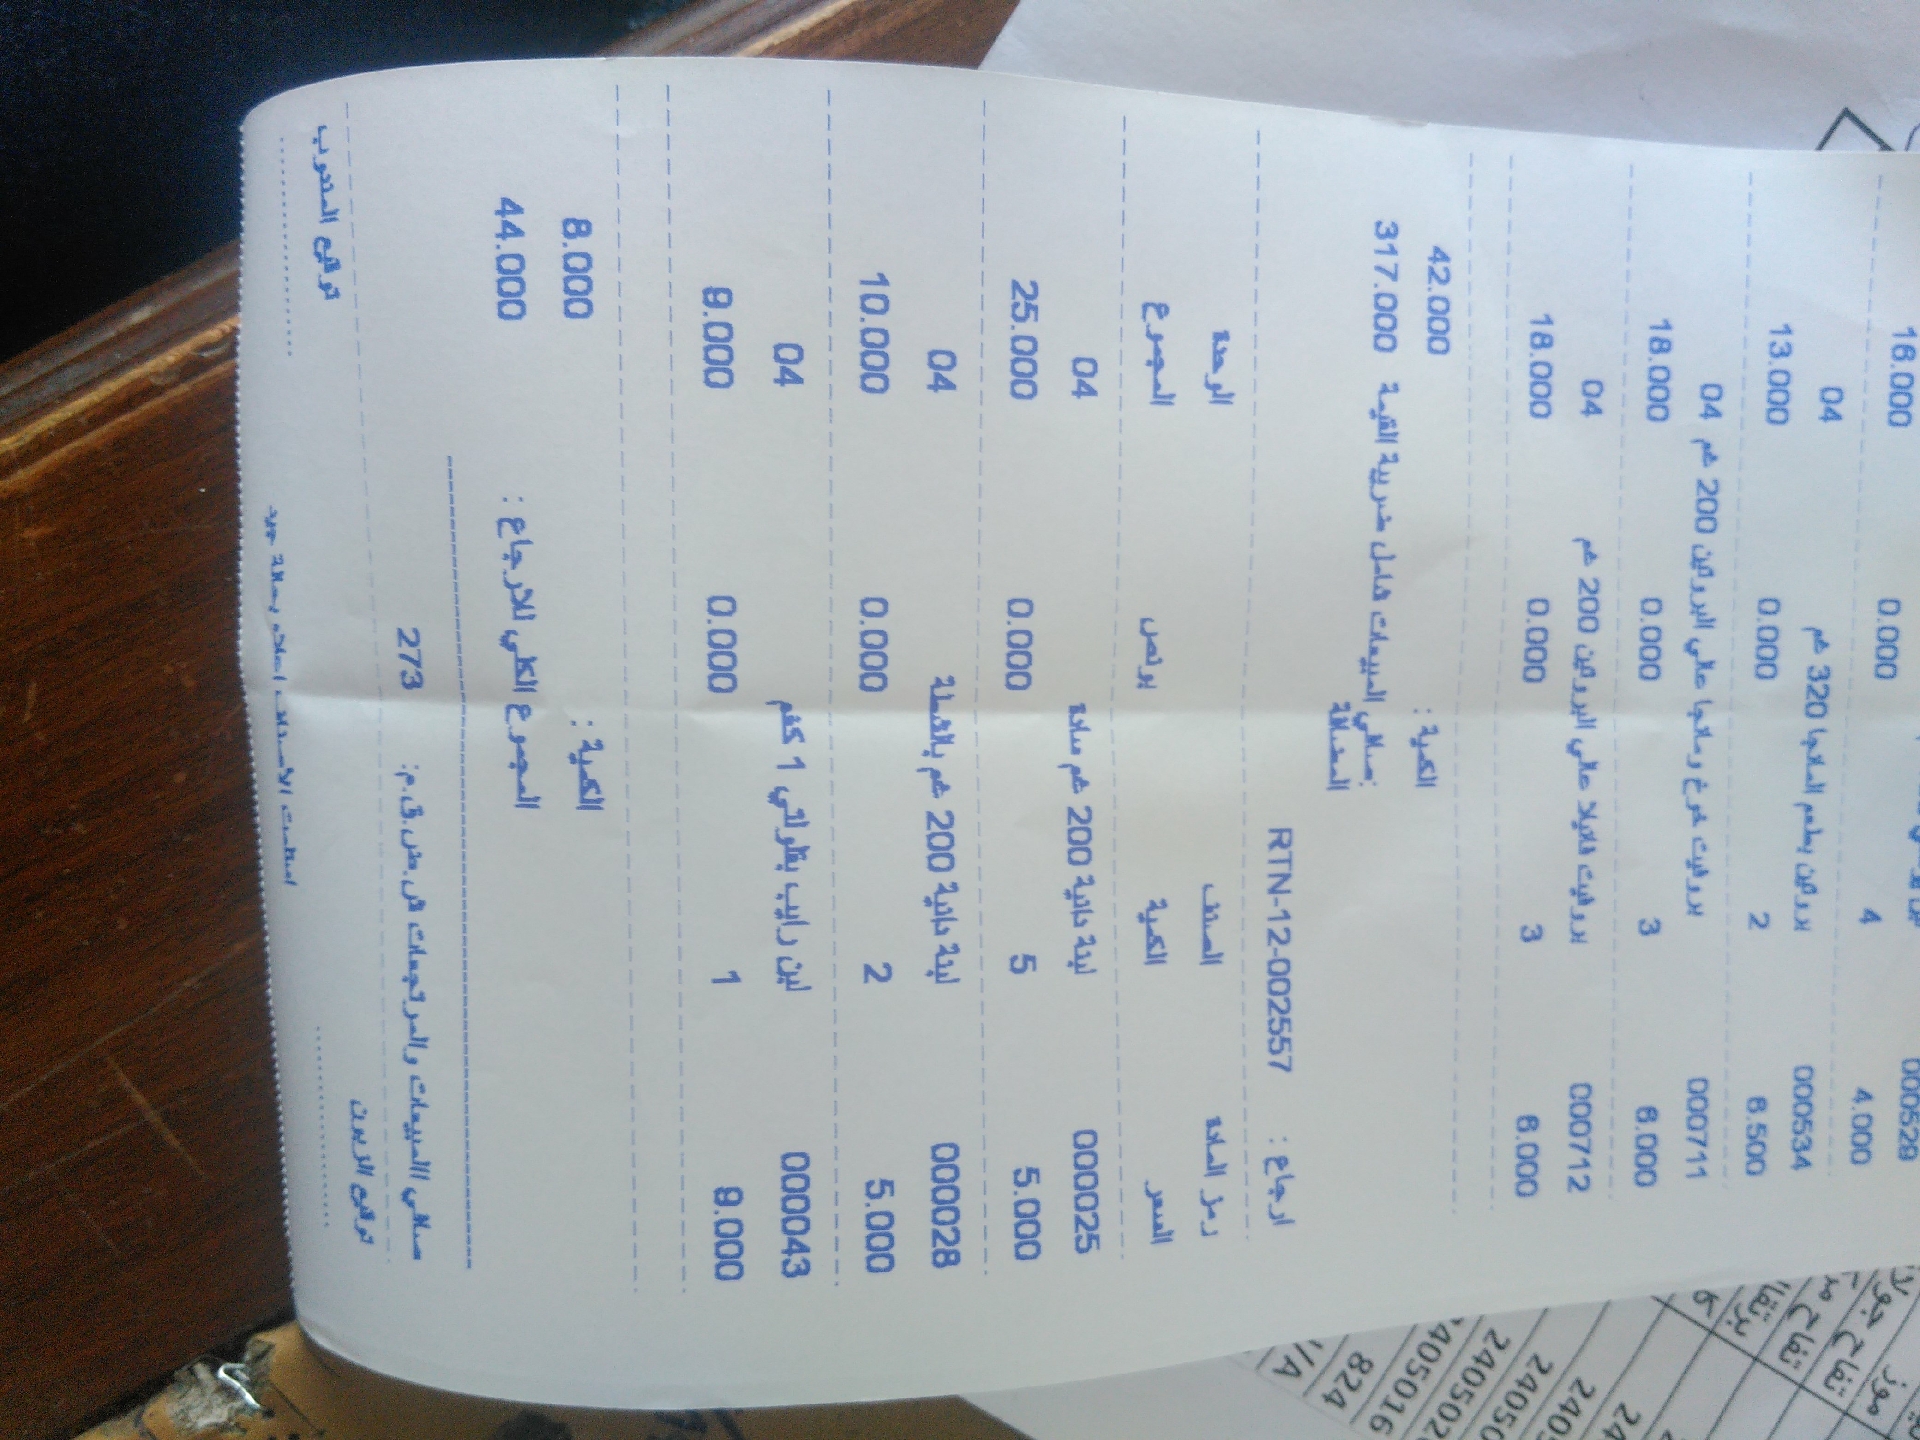 000529
4.000 4 0.000 16.000
000534 بروتين بطعم المانجا 320 غم 04
6.500 2 0.000 13.000
000711 بروفيت خوخ ومانجا عالي البروتين 200 غم 04
6.000 3 0.000 18.000
000712 بروفيت فانيلا عالي البروتين 200 غم 04
6.000 3 0.000 18.000
الكمية : 42.000
صافي المبيعات شامل ضريبة القيمة : 317.000
المضافة
ارجاع : RTN-12-002557
رمز المادة الصنف الوحدة
السعر الكمية بونص المجموع
000025 لبنة دانية 200 غم سادة 04
5.000 5 0.000 25.000
000028 لبنة دانية 200 غم 04
5.000 2 0.000 10.000
000043 لبن رايب بقولتي 1 كغم 04
9.000 1 0.000 9.000
الكمية : 8.000
المجموع الكلي للارجاع : 44.000
صافي االمبيعات والمرتجعات ش.ض.ق.م: 273
توقيع الزبون توقيع المندوب
استلمت الأصناف اعلاه بحالة جيدة
موز
تفاح
تفاح
24
240
24050
240502
2405016
824
N/A